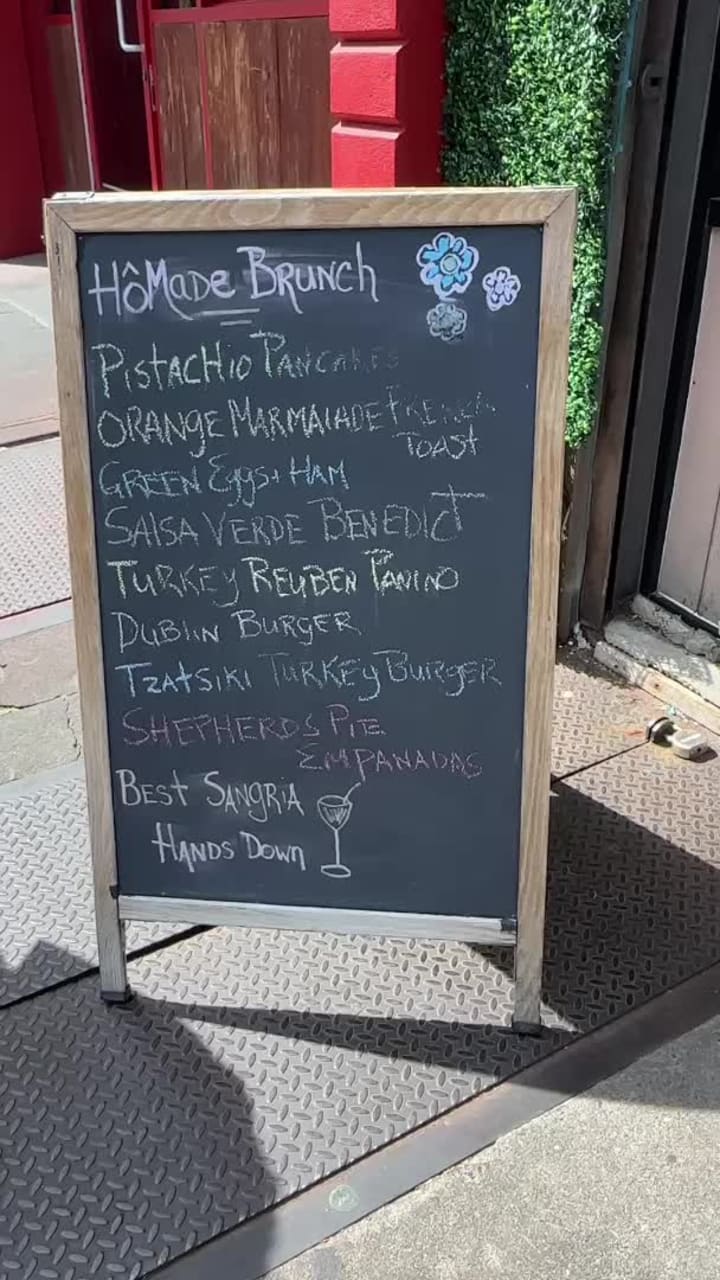 HôMade Brunch
Pistachio Pancakes
Orange Marmalade French
Toast
Green Eggs + Ham
Salsa Verde Benedict
Turkey Reuben Panino
Dublin Burger
Tzatsiki Turkey Burger
Shepherds Pie
Empanadas
Best Sangria
Hands Down